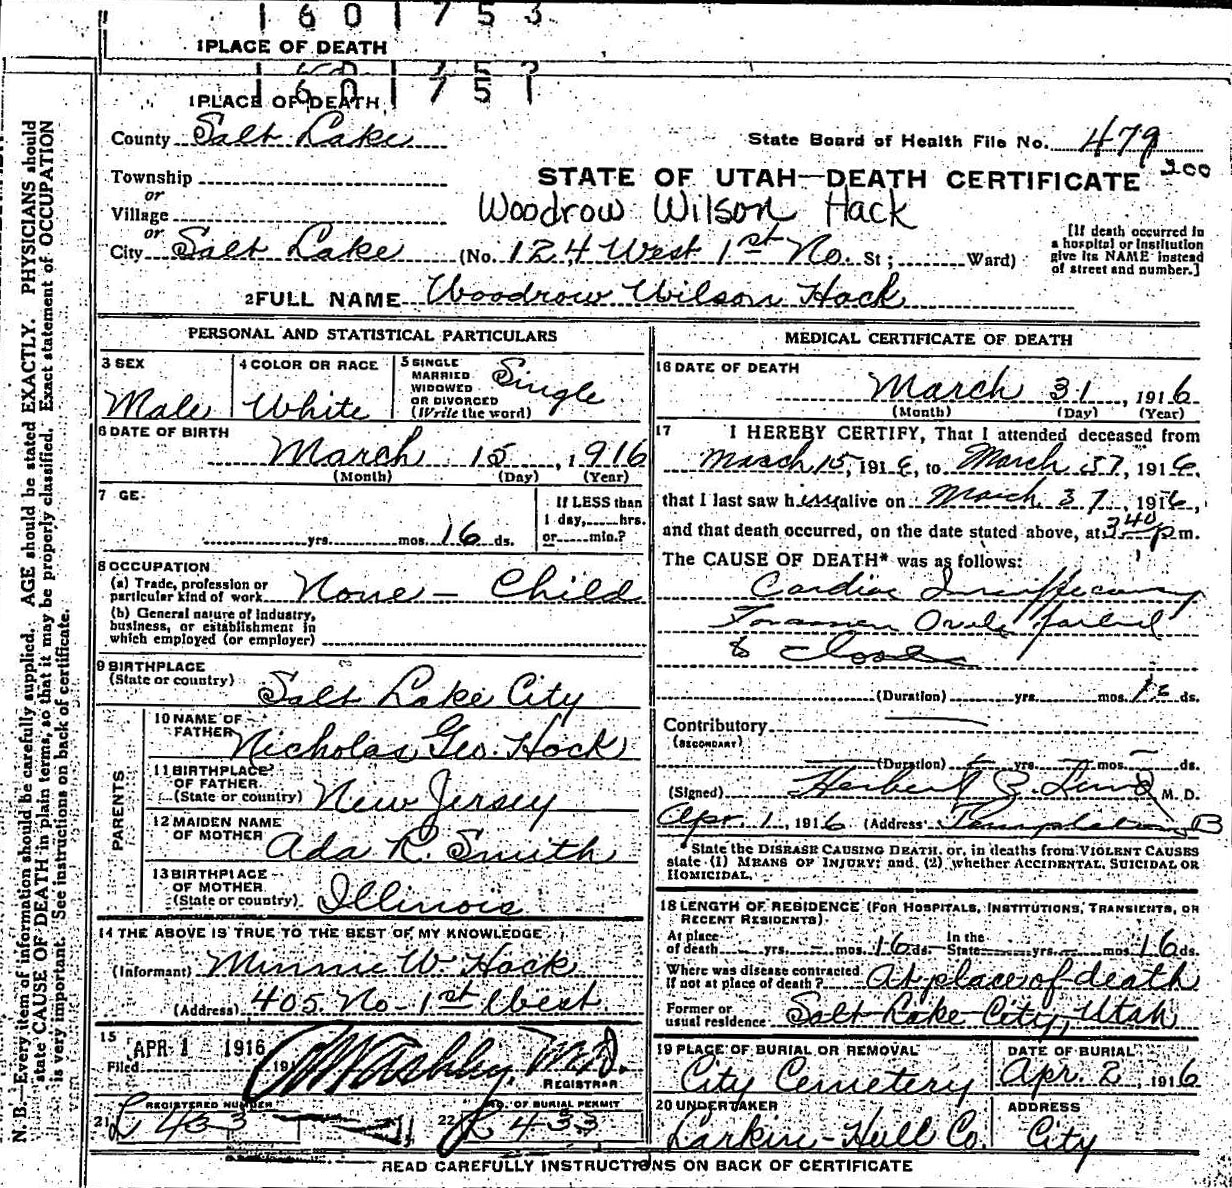 1 6 0 1 7 5 3
1 PLACE OF DEATH
1 6 0 1 7 5 1
1 PLACE OF DEATH
County Salt Lake
State Board of Health File No. 479
200
Township
or
Village
or
City Salt Lake (No. 124 West 1st No. St; Ward)
STATE OF UTAH—DEATH CERTIFICATE
Woodrow Wilson Hack
[If death occurred in
a hospital or institution
give its NAME instead
of street and number.]
2 FULL NAME Woodrow Wilson Hack
PERSONAL AND STATISTICAL PARTICULARS
3 SEX
Male
4 COLOR OR RACE
White
5 SINGLE
MARRIED
WIDOWED
OR DIVORCED
(Write the word)
Single
6 DATE OF BIRTH
March 15, 1916
(Month) (Day) (Year)
7 GE
yrs. mos. 16 ds.
If LESS than
1 day, hrs.
or min.?
8 OCCUPATION
(a) Trade, profession or
particular kind of work None - Child
(b) General nature of industry,
business, or establishment in
which employed (or employer)
9 BIRTHPLACE
(State or country) Salt Lake City
PARENTS
10 NAME OF
FATHER Nicholas Geo. Hack
11 BIRTHPLACE
OF FATHER
(State or country) New Jersey
12 MAIDEN NAME
OF MOTHER Ada R. Smith
13 BIRTHPLACE
OF MOTHER
(State or country) Illinois
14 THE ABOVE IS TRUE TO THE BEST OF MY KNOWLEDGE
(Informant) Minnie W. Hack
(Address) 405 No - 1st West
15
Filed APR 1 1916 191
M.D.
REGISTRAR
21 REGISTERED NUMBER
L 433
22 NO. OF BURIAL PERMIT
L 433
MEDICAL CERTIFICATE OF DEATH
16 DATE OF DEATH
March 31, 1916
(Month) (Day) (Year)
17 I HEREBY CERTIFY, That I attended deceased from
March 15, 1916, to March 31, 1916,
that I last saw h alive on March 31, 1916,
and that death occurred, on the date stated above, at 3 40 p m.
The CAUSE OF DEATH* was as follows:
Cardiac Insufficiency
Foramen Ovale failed
to close
(Duration) yrs. mos. ds.
Contributory
(SECONDARY)
(Duration) yrs. mos. ds.
(Signed) Herbert M. D.
Apr. 1, 1916 (Address)
State the DISEASE CAUSING DEATH, or, in deaths from VIOLENT CAUSES
state (1) MEANS OF INJURY; and (2) whether ACCIDENTAL, SUICIDAL OR
HOMICIDAL.
18 LENGTH OF RESIDENCE (FOR HOSPITALS, INSTITUTIONS, TRANSIENTS, OR
RECENT RESIDENTS).
At place
of death yrs. - mos. 16 ds. In the
State yrs. - mos. 16 ds.
Where was disease contracted
If not at place of death? At place of death
Former or
usual residence Salt Lake City, Utah
19 PLACE OF BURIAL OR REMOVAL
City Cemetery
DATE OF BURIAL
Apr. 2, 1916
20 UNDERTAKER
Larkin-Hull Co.
ADDRESS
City
READ CAREFULLY INSTRUCTIONS ON BACK OF CERTIFICATE
N. B.—Every item of information should be carefully supplied. AGE should be stated EXACTLY. PHYSICIANS should
state CAUSE OF DEATH in plain terms, so that it may be properly classified. Exact statement of OCCUPATION
is very important. See instructions on back of certificate.